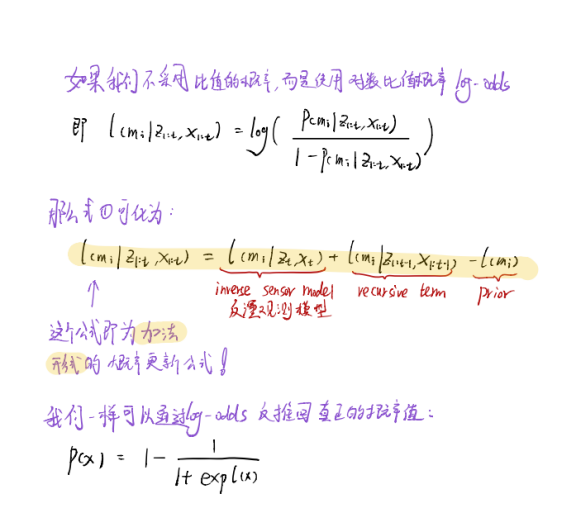 如果我们不采用比值的概率,而是使用对数比值概率 log-odds
即 l(m_i|z_{1:t},x_{1:t}) = log( p(m_i|z_{1:t},x_{1:t}) / 1-p(m_i|z_{1:t},x_{1:t}) )
那么式①可化为:
l(m_i|z_{1:t},x_{1:t}) = l(m_i|z_t,x_t) + l(m_i|z_{1:t-1},x_{1:t-1}) - l(m_i)
inverse sensor model recursive term prior
反演观测模型
↑
这个公式即为加法
形式的概率更新公式!
我们一样可以通过log-odds 反推回真正的概率值:
p(x) = 1 - 1 / 1+ exp l(x)